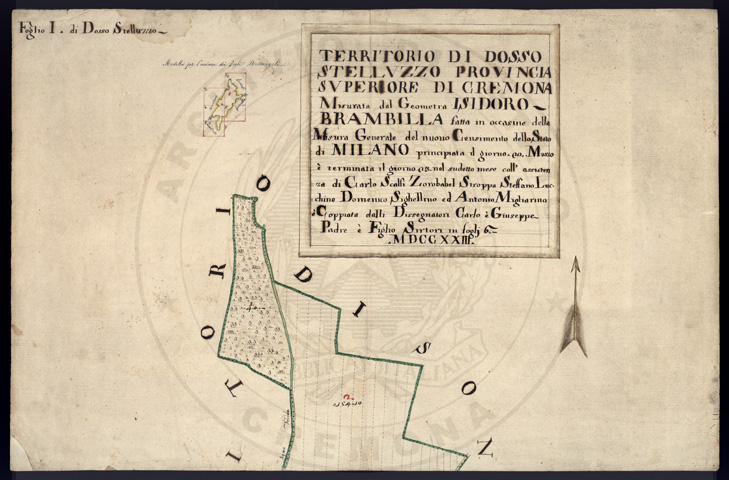 Foglio I. di Dosso Stelluzzo
Modello per l'unione dei fogli
TERRITORIO DI DOSSO
STELLUZZO PROVINCIA
SUPERIORE DI CREMONA
Misurata dal Geometra ISIDORO
BRAMBILLA fatta in occasione della
Misura Generale del nuovo Censimento dello Stato
di MILANO principiata il giorno 20. Marzo
è terminata il giorno nel sudetto mese coll' assisten
za di Carlo Scalfi Zorobabel Stroppa Steffano Luc
chino Domenico Sighellino ed Antonio Migliarino
è Coppiata dalli Dissegnatori Carlo è Giuseppe
Padre è Figlio Sirtori in fogli 6.
MDCCXXIII.
TITORIO
DI SON
2
ARCHIVIO
CREMONA